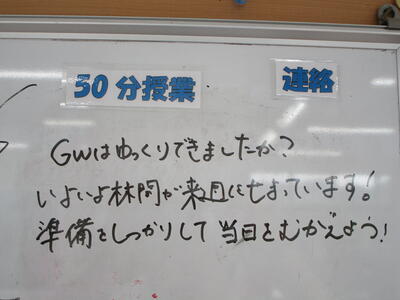 50分授業
連絡
GWはゆっくりできましたか?
いよいよ林間が来週にせまっています!
準備をしっかりして当日をむかえよう!